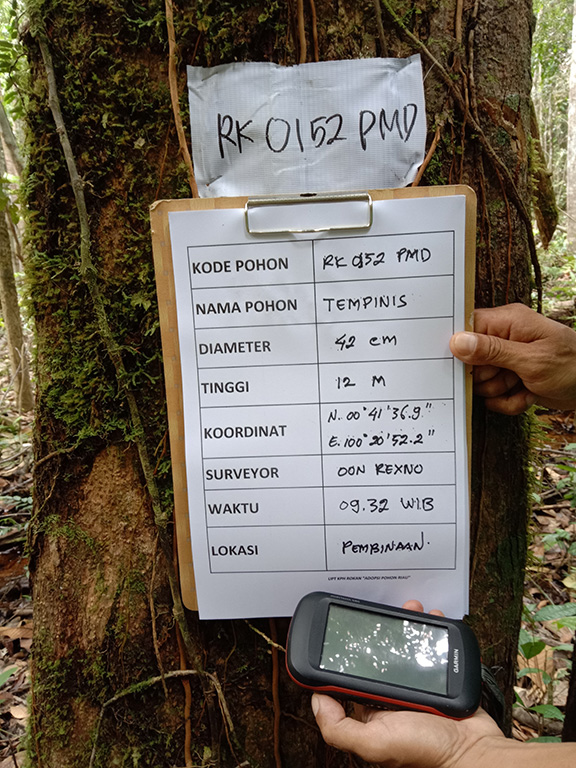 RK 0152 PMD
KODE POHON RK 0152 PMD
NAMA POHON TEMPINIS
DIAMETER 42 cm
TINGGI 12 M
KOORDINAT N. 00°41'36.9"
E. 100°20'52.2"
SURVEYOR OON REXNO
WAKTU 09.32 WIB
LOKASI PEMBINAAN.
UPT KPH ROKAN "ADOPSI POHON RIAU"
GARMIN